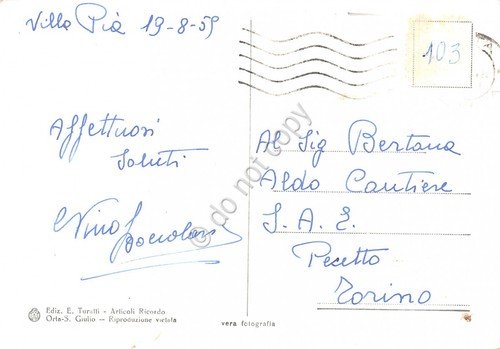 Villa Pia 19-8-59
103
Affettuosi
Saluti
Nino
Al Sig Bertana
Aldo Cantiere
S. A. E.
Pecetto
Torino
Ediz. E. Toretti - Articoli Ricordo
Orta-S. Giulio - Riproduzione vietata
vera fotografia
do not copy